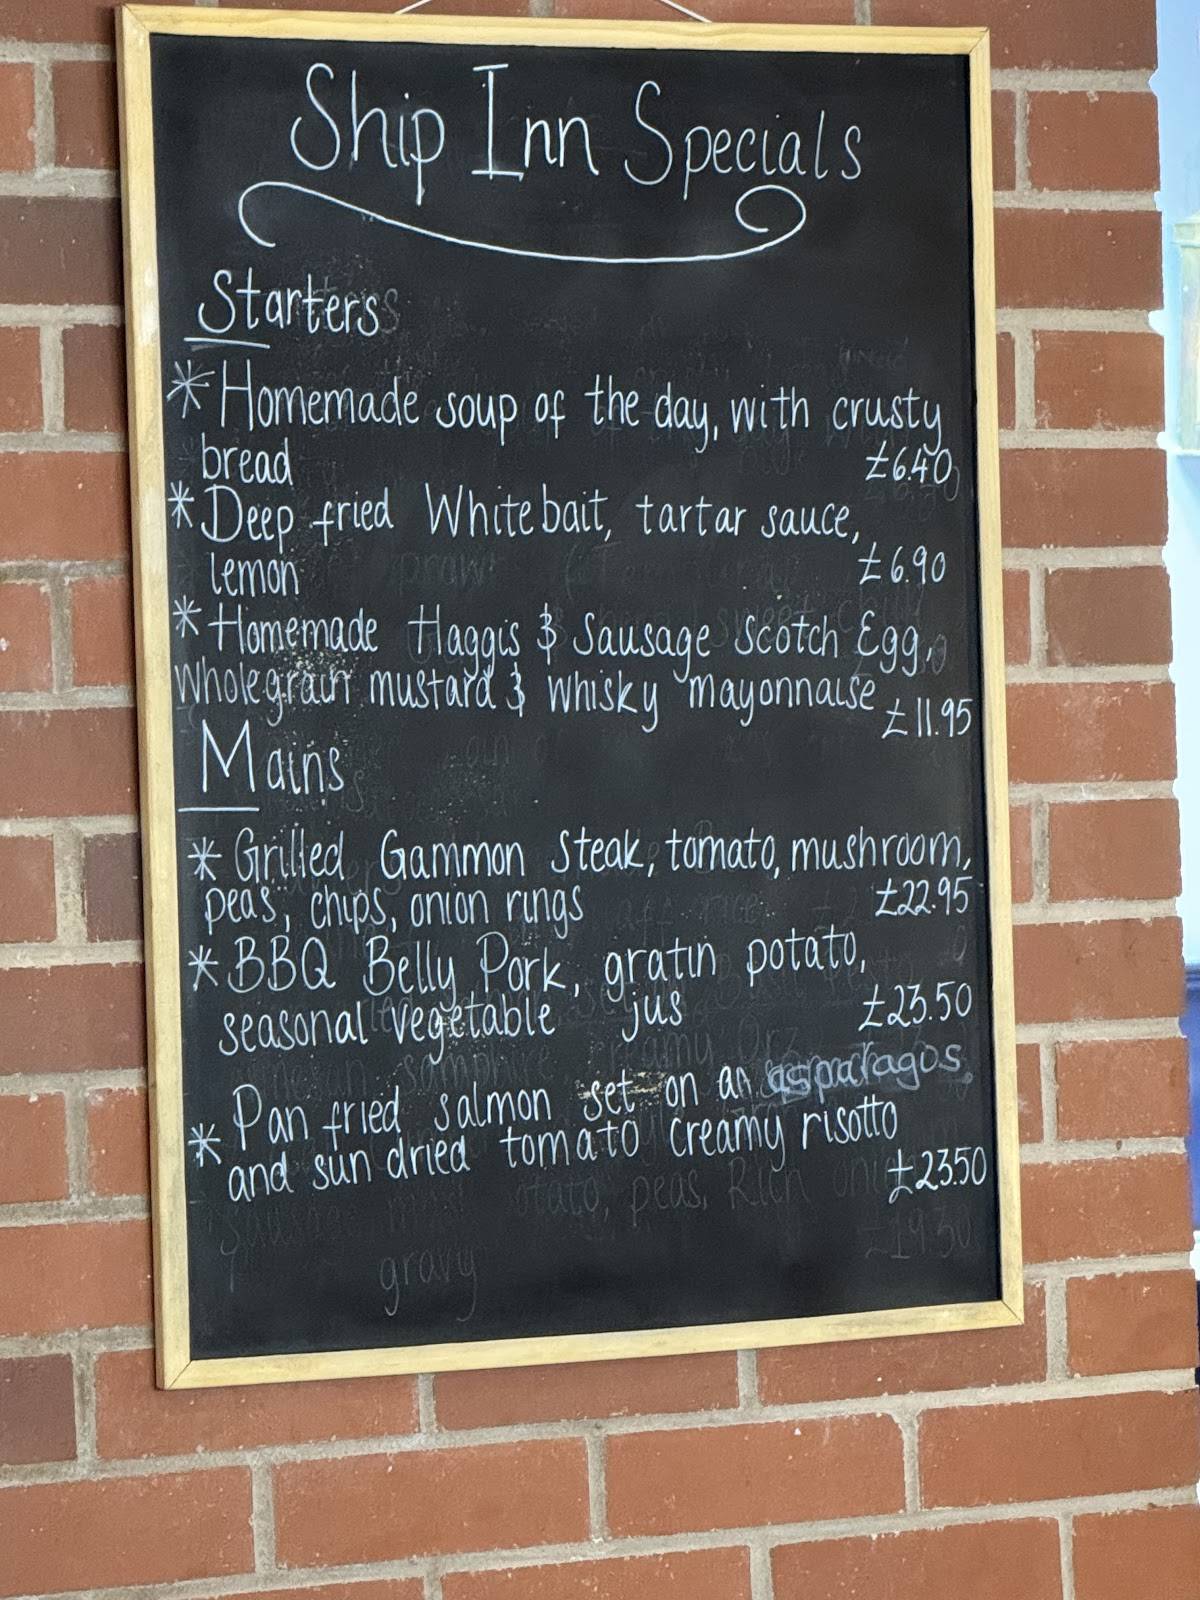 Ship Inn Specials
Starters
* Homemade soup of the day, with crusty
bread £6.40
* Deep fried Whitebait, tartar sauce,
lemon £6.90
* Homemade Haggis & Sausage Scotch Egg,
Wholegrain mustard & whisky mayonnaise £11.95
Mains
* Grilled Gammon Steak, tomato, mushroom,
peas, chips, onion rings £22.95
* BBQ Belly Pork, gratin potato,
seasonal vegetable jus £23.50
* Pan fried salmon set on an asparagos,
and sun dried tomato creamy risotto
£23.50
gravy